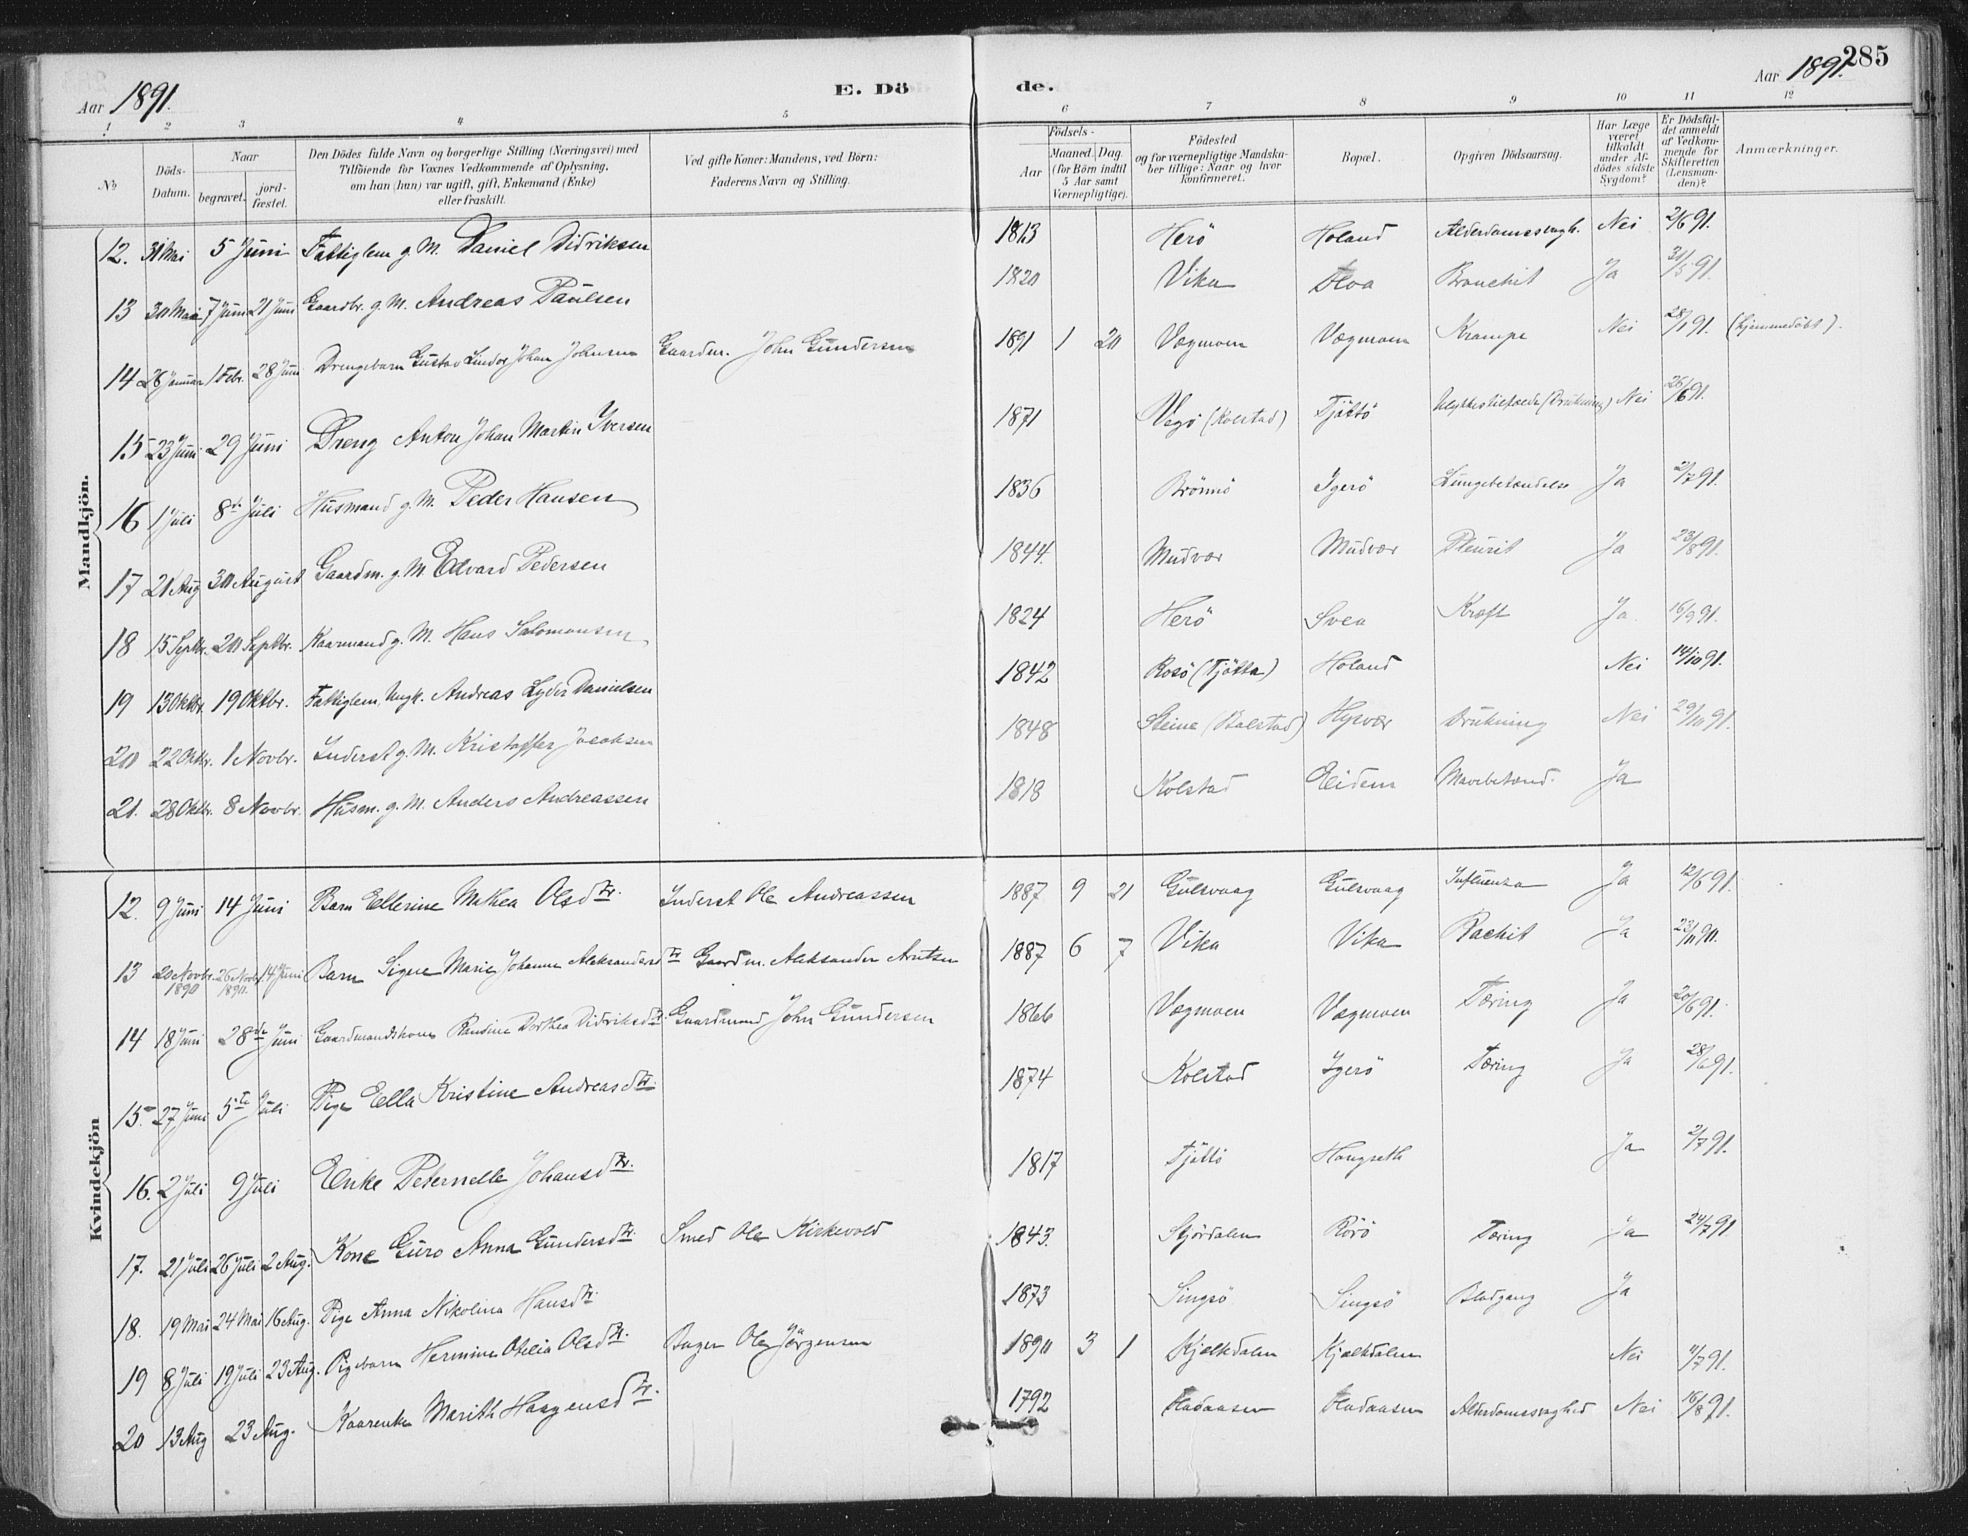 Aar 1891. E. Dö de. Aar 1891. 285
1 2 3 4 5 6 7 8 9 10 11 12
No Döds-Datum. Naar begravet. jord-fæstet. Den Dödes fulde Navn og borgerlige Stilling (Næringsvei) med Tilföiende for Voxnes Vedkommende af Oplysning, om han (hun) var ugift, gift, Enkemand (Enke) eller fraskilt. Ved gifte Koner: Mandens, ved Börn: Faderens Navn og Stilling. Födsels- Aar Maaned. Dag. (for Börn indtil 5 Aar samt Værnepligtige). Födested og for værnepligtige Mandskaber tillige: Naar og hvor konfirmeret. Bopæl. Opgiven Dödsaarsag. Har Læge været tilkaldt under Afdödes sidste Sygdom? Er Dödsfaldet anmeldt af Vedkommende for Skifteretten (Lensmanden)? Anmærkninger.
Mandkjön.
12. 31 Mai 5 Juni Fattiglem g. M. Daniel Didriksen 1813 Herö Holand Alderdomssvagh. Nei 2/6 91.
13 30 Mai 7 Juni 21 Juni Gaardbr. g. M. Andreas Paulsen 1820 Vika Bronchit Ja 31/5 91.
14 26 Januar 1 Febr. 28 Juni Drengebarn Gustav Lindor Johan Johnsen Gaardm. John Gundersen 1891 1 20 Vægmoen Vægmoen Krampe Nei 28/1 91. (hjemmedöbt).
15 23 Juni 29 Juni Dreng Anton Johan Martin Iversen 1871 Vegö (Kolstad) Tjöttö Ulykkestilfælde (Drukning) Nei 26/6 91.
16 1 Juli 8de Juli Husmand g. M. Peder Hansen 1836 Brönnö Igerö Lungebetændelse Ja 2/7 91.
17 21 Aug 30 August Gaardm. g. M. Edvard Pedersen 1844. Mudvær Mudvær Pleurit Ja 23/8 91.
18 15 Septbr. 20 Septbr. Kaarmand g. M. Hans Salomonsen 1824 Herö Svea Kræft Ja 16/9 91.
19 13 Oktbr. 19 Oktbr. Fattiglem, Ungk. Andreas Lyder Danielsen 1842 Rosö (Tjötta) Holand Nei 14/10 91.
20 22 Oktbr. 1 Novbr. Inderst g. M. Kristoffer Jacobsen 1848 Steine (Bolstad) Hysvær Drukning Nei 29/10 91.
21. 28 Oktbr. 8 Novbr. Husm. g. M. Anders Andreassen 1818 Kolstad Eidem Mavebetænd. Ja
Kvindekjön
12. 9 Juni 14 Juni Barn Ellerine Mathea Olsdtr. Inderst Ole Andreassen 1887 9 21 Gulsvaag Gulsvaag Influenza Ja 12/6 91.
13 20 Novbr. 1890 26 Novbr. 1890. 14 Juni Barn Signe Marie Johanne Aleksandersdtr Gaardm. Aleksander Arntsen 1887 6 7 Vika Vika Rachit Ja 23/11 90.
14 18 Juni 28de Juni Gaardmandskone Dorthea Didriksdtr Gaardmand John Gundersen 1866 Vægmoen Vægmoen Tæring Ja 20/6 91.
15. 27 Juni 5te Juli Pige Ella Kristine Andreasdtr. 1874 Kolstad Igerö Tæring Ja 28/6 91.
16. 2 Juli 9 Juli Enke Peternelle Johansdtr. 1817 Tjöttö Ja 2/7 91.
17. 21 Juli 26 Juli 2 Aug. Kone Guro Anna Gundersdtr. Smed Ole Kirkevold 1843. Stjördalen Rörö Tæring Ja 24/7 91.
18. 19 Mai 24 Mai 16 Aug. Pige Anna Nikolina Hansdtr. 1873 Singsö Singsö Blodgang Ja
19 8 Juli 19 Juli 23 Aug. Pigebarn Hermine Otelia Olsdtr. Bager Ole Jörgensen 1890 3 1 Kjælkdalen Kjælkdalen Nei 11/7 91.
20 13 Aug 23 Aug. Kaarenke Marith Haagensdtr. 1792 Fladaasen Fladaasen Alderdomssvaghed Nei 16/8 91.